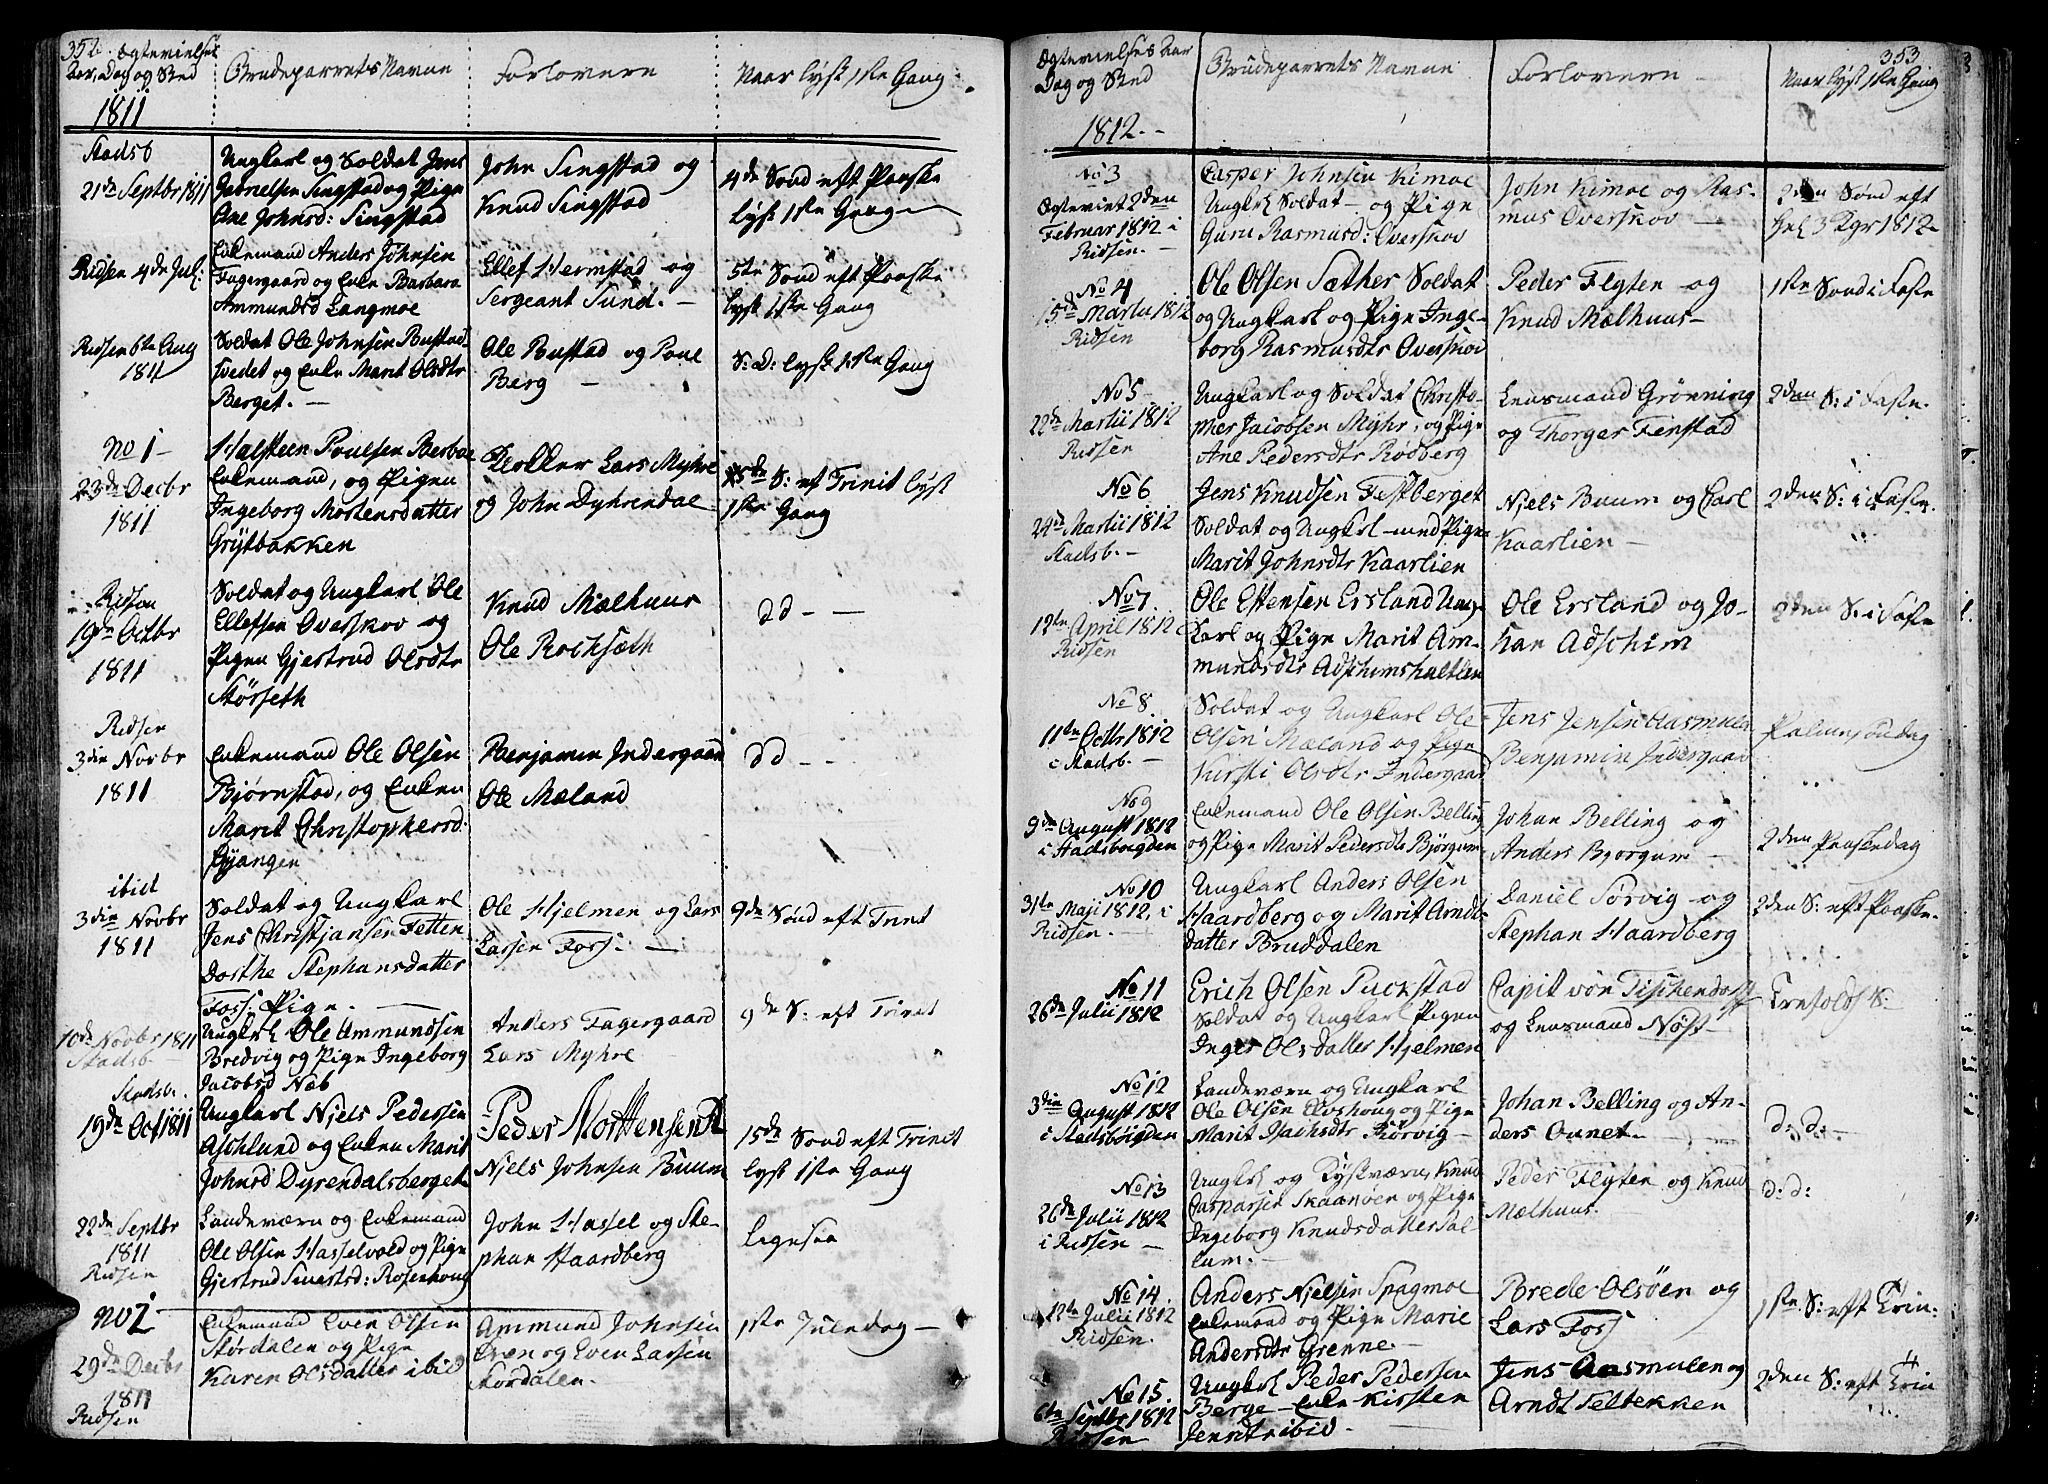 352. Egtevielses
Aar, Dag og Sted
1811
Brudeparrets Navne
Forlovere
Naar lyst 1ste Gang
Stadsb
21de Septbr 1811
Ungkarl og Soldat Jens
Gabrielsen Singstad og Pige
Ane Johnsd: Singstad
John Singstad og
Knud Singstad
4de Sönd eft Paaske
lyst 1ste Gang
Ridsen 4de Jul:
Enkemand Anders Johnsen
Fagergaard og Enke Barbara
Ammundsd Langmoe
Ellef Hermstad og
Sergeant Sund. —
5te Sönd eft Paaske
lyst 1ste Gang
Ridsen 6te Aug
1811
Soldat Ole Johnsen Bustad-
svedet og Enke Marit Olsdtr
Berget. —
Ole Bustad og Poul
Berg —
S: D: lyst 1ste Gang
No 1 —
23de Decbr
1811
Halsteen Poulsen Berbae
Enkemand, og Pigen
Ingeborg Mortensdatter
Grytbakken
Klokker Lars Myhre
og John Dyhrendal
5de S: eft Trinit lyst
1ste Gang
Ridsen
19de Octbr
1811
Soldat og Ungkarl Ole
Ellefsen Overskov og
Pigen Gjertrud Olsdtr
Störseth
Knud Mælhuus
Ole Rocksæth
dd — —
Ridsen
3die Novbr
1811
Enkemand Ole Olsen
Bjørnstad, og Enken
Marit Christophersd.
Gjangen
Benjamin Indergaard
Ole Mæland
dd — —
ibid
3die Novbr
1811
Soldat og Ungkarl
Jens Christjansen Fetten
Dorthe Stephansdatter
Fors. Pige. —
Ole Hjelmen og Lars
Larsen Fors. —
9de Sönd eft Trinit
10de Novbr 1811
Stadsb —
Ungkrl Ole Ammundsen
Bredvig og Pige Ingeborg
Jacobsd Næb
Anders Fagergaard
Lars Myhre
9de S: eft Trinit
Stadsb.
19de Oct 1811
Ungkarl Niels Pedersen
Aschlund og Enken Marit
Johnsd Dyrendalsberget
Peder Morttensen
Niels Johnsen Buum
15de Sönd eft Trinit
lyst 1ste Gang
22de Septbr
1811
Ridsen
Landeværn og Enkemand
Ole Olsen Hasselvold og Pige
Gjertrud Sivertsd: Rosenhoug
John Hassel og Ste-
phan Haardberg
Ligesaa
No 2
29de Decbr
1811
Ridsen
Enkemand Even Olsen
Størdalen og Pige
Karen Olsdatter ibid
Ammund Johnsen
Ören og Even Larsen
Stordalen.
1ste Juledag —
Egtevielses Aar
Dag og Sted
1812. —
Brudeparrets Navne
Forlovere —
353
Naar lyst 1ste Gang
No 3
Egteviet 2den
Februar 1812 i
Ridsen. —
Casper Johnsen Kimoe
Ungkrl Soldat — og Pige
Guru Rasmusd: Overskov
John Kimoe og Ras-
mus Overskov —
2den Sönd eft
Hel 3 Kgr 1812 —
No 4
15de Martii 1812
Ridsen
Ole Olsen Sæther Soldat
og Ungkarl og Pige Inge-
borg Rasmusdtr Overskov
Peder Flyten — og
Knud Mælhuus —
1ste Sönd i Faste
No 5 —
22de Martii 1812
Ridsen
Ungkarl og Soldat Christo-
pher Jacobsen Myhr, og Pige
Ane Pedersdtr Rödberg
Lensmand Grönning
og Thorger Fenstad
2den S: i Faste.
No 6
24de Martii 1812
Stadsb. —
Jens Knudsen Festberget
Soldat og Ungkrl — med Pige
Marit Johnsdtr Kaarlien
Niels Buum og Carl
Kaarlien —
2den S: i Faste.
No 7.
12te April 1812
Ridsen
Ole Estensen Ersland Ung-
karl og Pige Marit Am-
mundsdtr Adschimshaltlen
Ole Ersland og Jo-
han Adschim
2den S: i Faste
No 8.
11te Octbr 1812
i Stadsb. —
Soldat og Ungkarl Ole
Olsen Mæland og Pige
Kirsti Olsdtr Indergaar
Jens Jensen Aasmulen
Benjamin Indergaar
Palmesöndag
No 9
9de August 1812
i Stadsboigden
Enkemand Ole Olsen Belling
og Pige Marit Pedersdtr Björgum
Johan Belling og
Anders Bjorgum —
2den Paaskedag
No 10
31te Maji 1812, i
Ridsen. —
Ungkarl Anders Olsen
Haardberg og Marit Arndt-
datter Bruddalen
Daniel Sørvig — og
Stephan Haardberg
2den S: eft Paaske.
No 11
26de Julii 1812
Erich Olsen Puckstad
Soldat og Ungkarl Pigen
Inger Olsdatter Hjelmen
Capit von Tischendorff
og Lensmand Nöst —
Trefoldh S:
No 12
3die August 1812
i Stadsböigden
Landeværn og Ungkarl
Ole Olsen Elvshoug og Pige
Marit Isachsdtr Sörvig —
Johan Belling og An-
ders Ounet. —
d: d: —
No 13
26de Julii 1812
i Ridsen —
Ungkrl og Kystværn, Knud
Casparsen Skaanöen og Pige
Ingeborg Knudsdatter Sal
lum. —
Peder Flyten og Knud
Mælhuus.
d: d:
No 14.
12te Julii 1812
Ridsen.
Anders Nielsen Spagmoe
Enkemand og Pige Marie
Andersdtr Grenne. —
Brede Olsöen og
Lars Fors
1ste S: eft Trin.
No 15.
6te Septbr 1812
Ridsen —
Ungkrl Peder Pedersen
Berge — Enke Kirsten
Jensdtr ibid.
Jens Aasmulen og
Arndt Feltekken
2den S: eft Trin